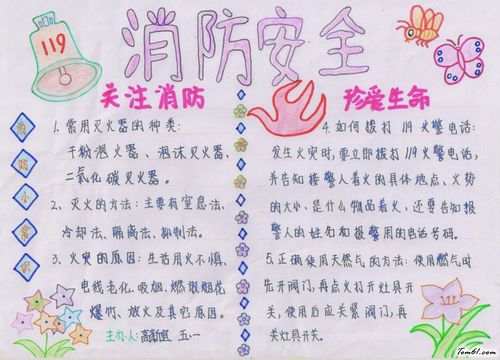 119
消防安全
关注消防
珍爱生命
消防小常识
1、常用灭火器的种类:
干粉泡火器、泡沫灭火器、
二氧化碳灭火器。
2、灭火的方法:主要有窒息法、
冷却法、隔离法、抑制法。
3、火灾的原因:生活用火不慎、
电线老化、吸烟、燃放烟花
爆竹、放火及其它原因。
主办人:
五.一
4、如何拨打119火警电话:
发生火灾时,要立即拨打119火警电话,
并告知接警人着火的具体地点、火势
的大小、是什么物品着火,还要告知报
警人的姓名和报警用的电话号码。
5、正确使用天然气的方法:使用燃气时
先开阀门,再点火打开灶具开
关,使用后应关紧阀门,再
关灶具开关。
Tom61.com